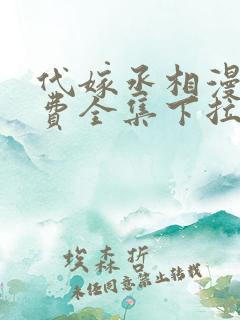 代嫁丞相漫
费全集下拉
埃森哲
未经同意禁止转载